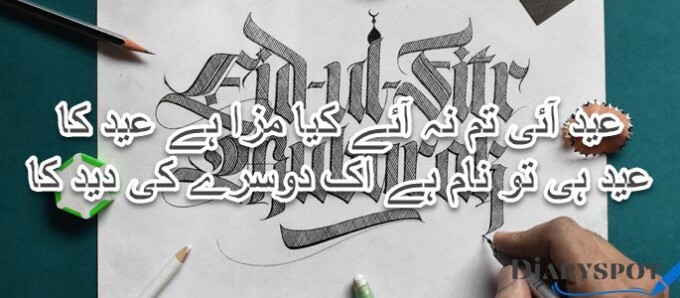 Eid-ul-Fitr
Mubarak
عید آئی تم نہ آئے کیا مزا ہے عید کا
عید ہی تو نام ہے اک دوسرے کی دید کا
DIARYSPOT